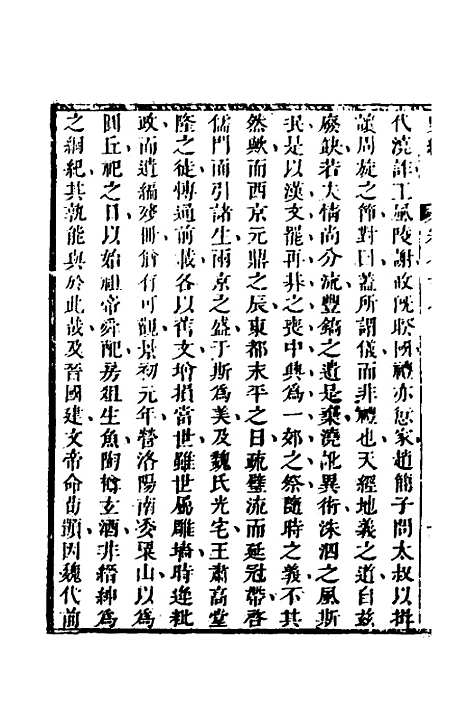 代澆訛王風陵謝故既睽國禮亦愆家趙簡子問太叔以揖
讓周旋之節對曰蓋所謂儀而非禮也天經地義之道自茲
廢缺若夫情尚分流豐鎬之遺是棄澆訛異術洙泗之風斯
泯是以漢文罷再朞之喪中興爲一郊之祭隨時之義不其
然歟而西京元鼎之辰東都末平之日疏璧流而延冠帶啓
儒門而引諸生兩京之盛于斯爲美及魏氏光宅王肅高堂
隆之徒博通前載各以舊文增損當世雖世屬雕墻時逢粃
政而遺編殘冊猶有可觀景初元年營洛陽南委粟山以爲
圓丘祀之日以始祖帝舜配房俎生魚陶樽玄酒非縉紳爲
之綱紀其孰能與於此哉及晉國建文帝命荀顗因魏代前